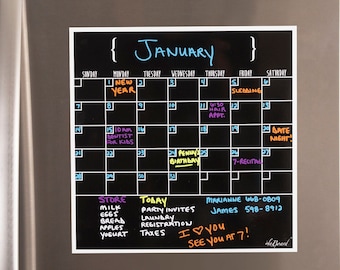 { JANUARY }
SUNDAY MONDAY TUESDAY WEDNESDAY THURSDAY FRIDAY SATURDAY
1 2 3 4 5 6
NEW YEAR
SLEDDING
7 8 9 10 11 12 13
4:30 HAIR APPT.
14 15 16 17 18 19 20
10AM DENTIST FOR KIDS
DATE NIGHT!
21 22 23 24 25 26 27
PENNY'S BIRTHDAY
7-RECITAL
28 29 30 31
STORE
MILK
EGGS
BREAD
APPLES
YOGURT
TODAY
PARTY INVITES
LAUNDRY
REGISTRATION
TAXES
MARIANNE 668-0809
JAMES 598-8912
I ♡ YOU
SEE YOU AT 7!